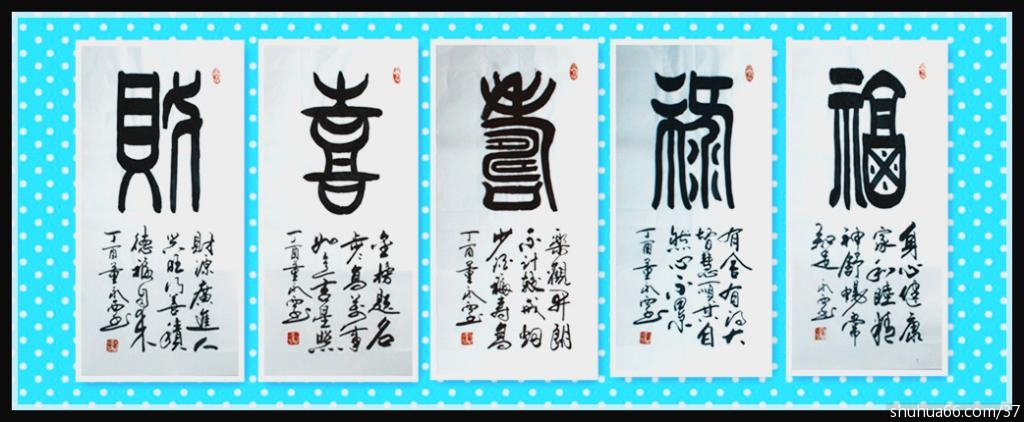 福
身心健康
家和睦精
神舒暢常
知足
祿
有舍有得大
智慧順其自
然心不累
丁酉董書
壽
樂觀开朗
不計較戒烟
少酒福壽高
丁酉董書
喜
金榜題名
步々高萬事
如意吉星照
丁酉董書
財
財源廣進人
興旺行善積
德福自來
丁酉董書
shuhua66.com/37